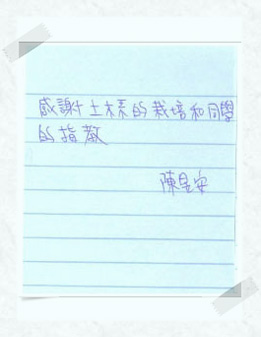 感謝土木系的栽培和同學
的指教
陳昱安